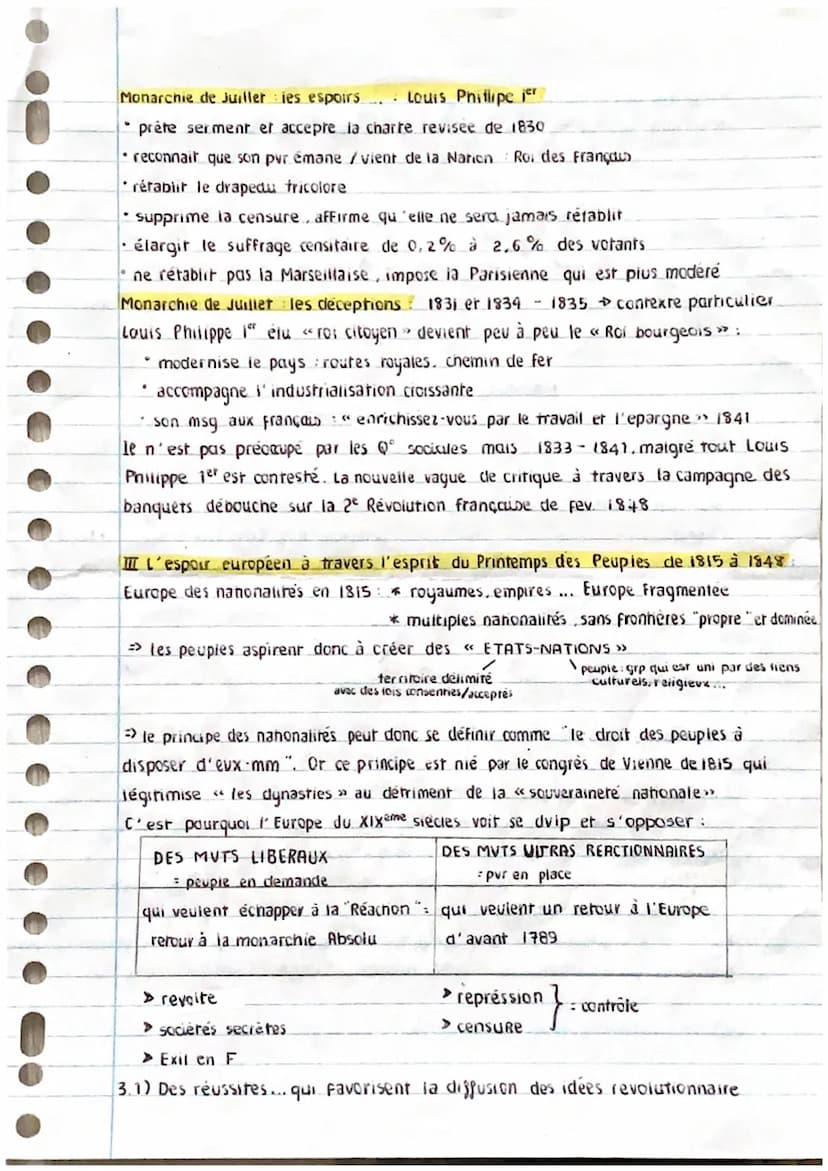 Monarchie de Juillet : les espoirs ... : Louis Phillipe 1er
• prête serment et accepte la charte revisée de 1830
• reconnait que son pvr émane / vient de la Nation : Roi des Français
• rétablit le drapeau tricolore
• supprime la censure, affirme qu'elle ne sera jamais rétablit
• élargit le suffrage censitaire de 0,2% à 2,6% des votants
• ne rétablit pas la Marseillaise, impose la Parisienne qui est plus modéré
Monarchie de Juillet : les déceptions : 1831 et 1834 - 1835 → contexte particulier
Louis Philippe 1er élu « roi citoyen » devient peu à peu le « Roi bourgeois » :
• modernise le pays : routes royales, chemin de fer
• accompagne l'industrialisation croissante
• son msg aux français : « enrichissez-vous par le travail et l'epargne » 1841
Ie n'est pas préocupé par les Q° sociales mais 1833 - 1841, malgré tout Louis
Philippe 1er est contesté. La nouvelle vague de critique à travers la campagne des
banquets débouche sur la 2e Révolution française de fev. 1848
III L'espoir européen à travers l'esprit du Printemps des Peuples de 1815 à 1848 :
Europe des nationalités en 1815 : * royaumes, empires ... Europe Fragmentée
* multiples nationalités, sans frontières "propre" et dominée
⇒ les peuples aspirent donc à créer des « ETATS-NATIONS »
territoire délimité
avec des lois consenties/acceptés
peuple : grp qui est uni par des liens
culturels, religieux...
⇒ le principe des nationalités peut donc se définir comme "le droit des peuples à
disposer d'eux-mm". Or ce principe est nié par le congrès de Vienne de 1815 qui
légitimise « les dynasties » au détriment de la « souveraineté nationale »
C'est pourquoi l'Europe du XIXème siècles voit se dvlp et s'opposer :
DES MVTS LIBERAUX
= peuple en demande
DES MVTS ULTRAS REACTIONNAIRES
= pvr en place
qui veulent échapper à la "Réaction" =
retour à la monarchie Absolu
qui veulent un retour à l'Europe
d'avant 1789
➤ revolte
➤ sociétés secrètes
➤ Exil en F
➤ répression
➤ censure
= contrôle
3.1) Des réussites... qui favorisent la diffusion des idées revolutionnaire